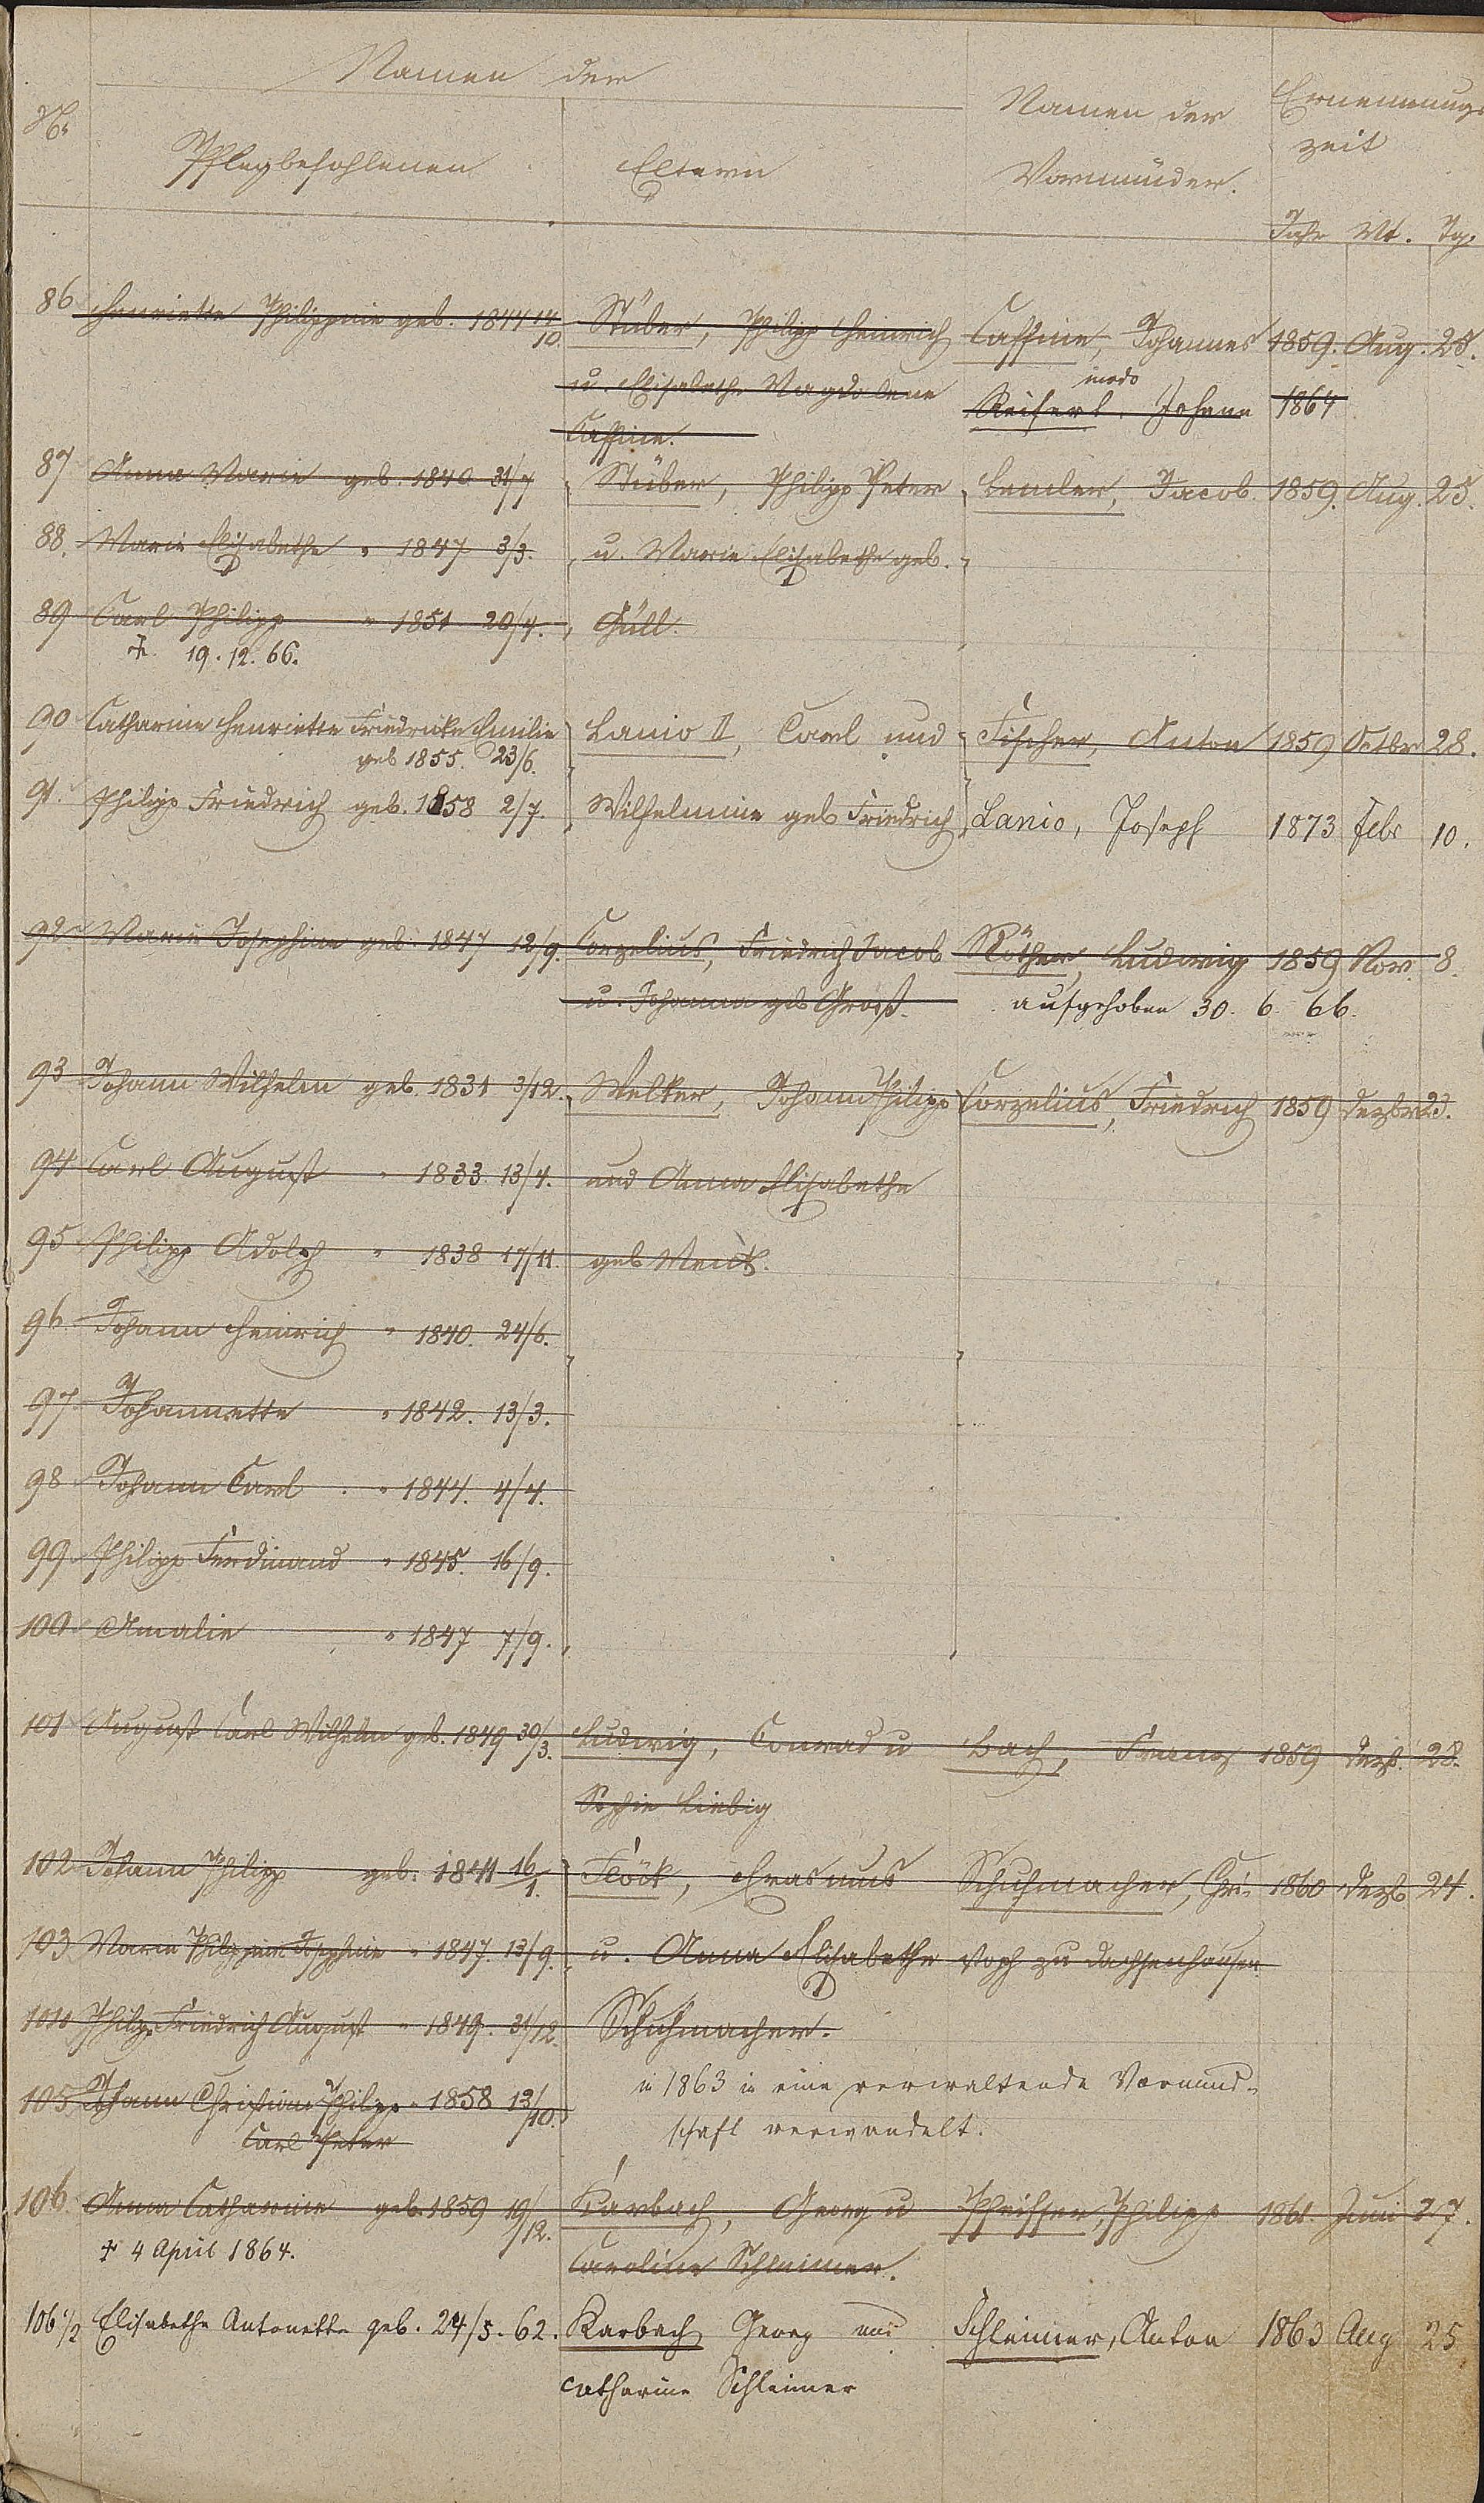 Namen der
No.
Pflegbefohlenen
Eltern
Namen der
Vormünder.
Ernennungs
zeit
Jahr Mt. Tg.
86 Henriette Philippine geb. 1844 14/10. Stüber, Philipp Heinrich Caffine, Johannes 1859. Aug. 25.
u. Elisabethe Magdalene modo
Reifert. Johann 1864
Caffine.
87 Anna Marie geb. 1840 31/7 Stüber, Philipp Peter Lemler, Jacob. 1859. Aug. 25.
88. Marie Elisabethe " 1847 3/3. u. Marie Elisabethe geb.
89 Carl Philipp " 1851 20/4. Güll.
†. 19. 12. 66.
90 Catharine Henriette Friedricke Emilie Lanio II, Carl und Fischer, Anton 1859 Octbr 28.
geb 1855. 23/6.
91. Philipp Friedrich geb. 1858 2/7. Wilhelmine geb Friedrich Lanio, Joseph 1873 Febr 10.
92 Marie Josephine geb. 1847 12/9. Corzelius, Friedrich Jacob Röther, Ludwig 1859 Nov. 8.
u. Johanna geb Groß. aufgehoben 30. 6. 66.
93 Johann Wilhelm geb. 1831 3/12. Welker, Johann Philipp Corzelius, Friedrich 1859 Dezbr 23.
94 Carl August " 1833. 13/4. und Anna Elisabethe
95 Philipp Adolph " 1838 17/11. geb
96 Johann Heinrich " 1840. 24/6.
97 Johannette " 1842. 13/3.
98 Johann Carl " 1844. 4/4.
99 Philipp Ferdinand " 1845. 16/9.
100 Amalie " 1847 7/9.
101 August Carl Wilhelm geb. 1849 30/3. Ludwig, Conrad u Bach, Franz 1859 Dezb. 28.
Sophie Liebig
102 Johann Philipp geb. 1841 16/1. Flöck, Erasmus Schuhmacher, Chri- 1860 Dezb. 24.
103 Marie Philippine Josephine " 1847. 13/9. u. Anna Elisabethe stoph zu Dachsenhausen
104 Philip Friedrich August " 1849. 31/12. Schuhmacher.
in 1863 in eine verwaltende Vormund-
105 Johann Christian Philipp " 1858 13/10.
schaft verwandelt.
Carl Peter
106. Anna Catharine geb. 1859 19/12. Karbach, Georg u Pfeiffer, Philipp 1861. Juni 27.
† 4 April 1864.
Caroline Schleimer.
106 1/2 Elisabethe Antonette geb. 24/5. 62. Karbach Georg und Schleimer, Anton 1863 Aug 25
Catharine Schleimer